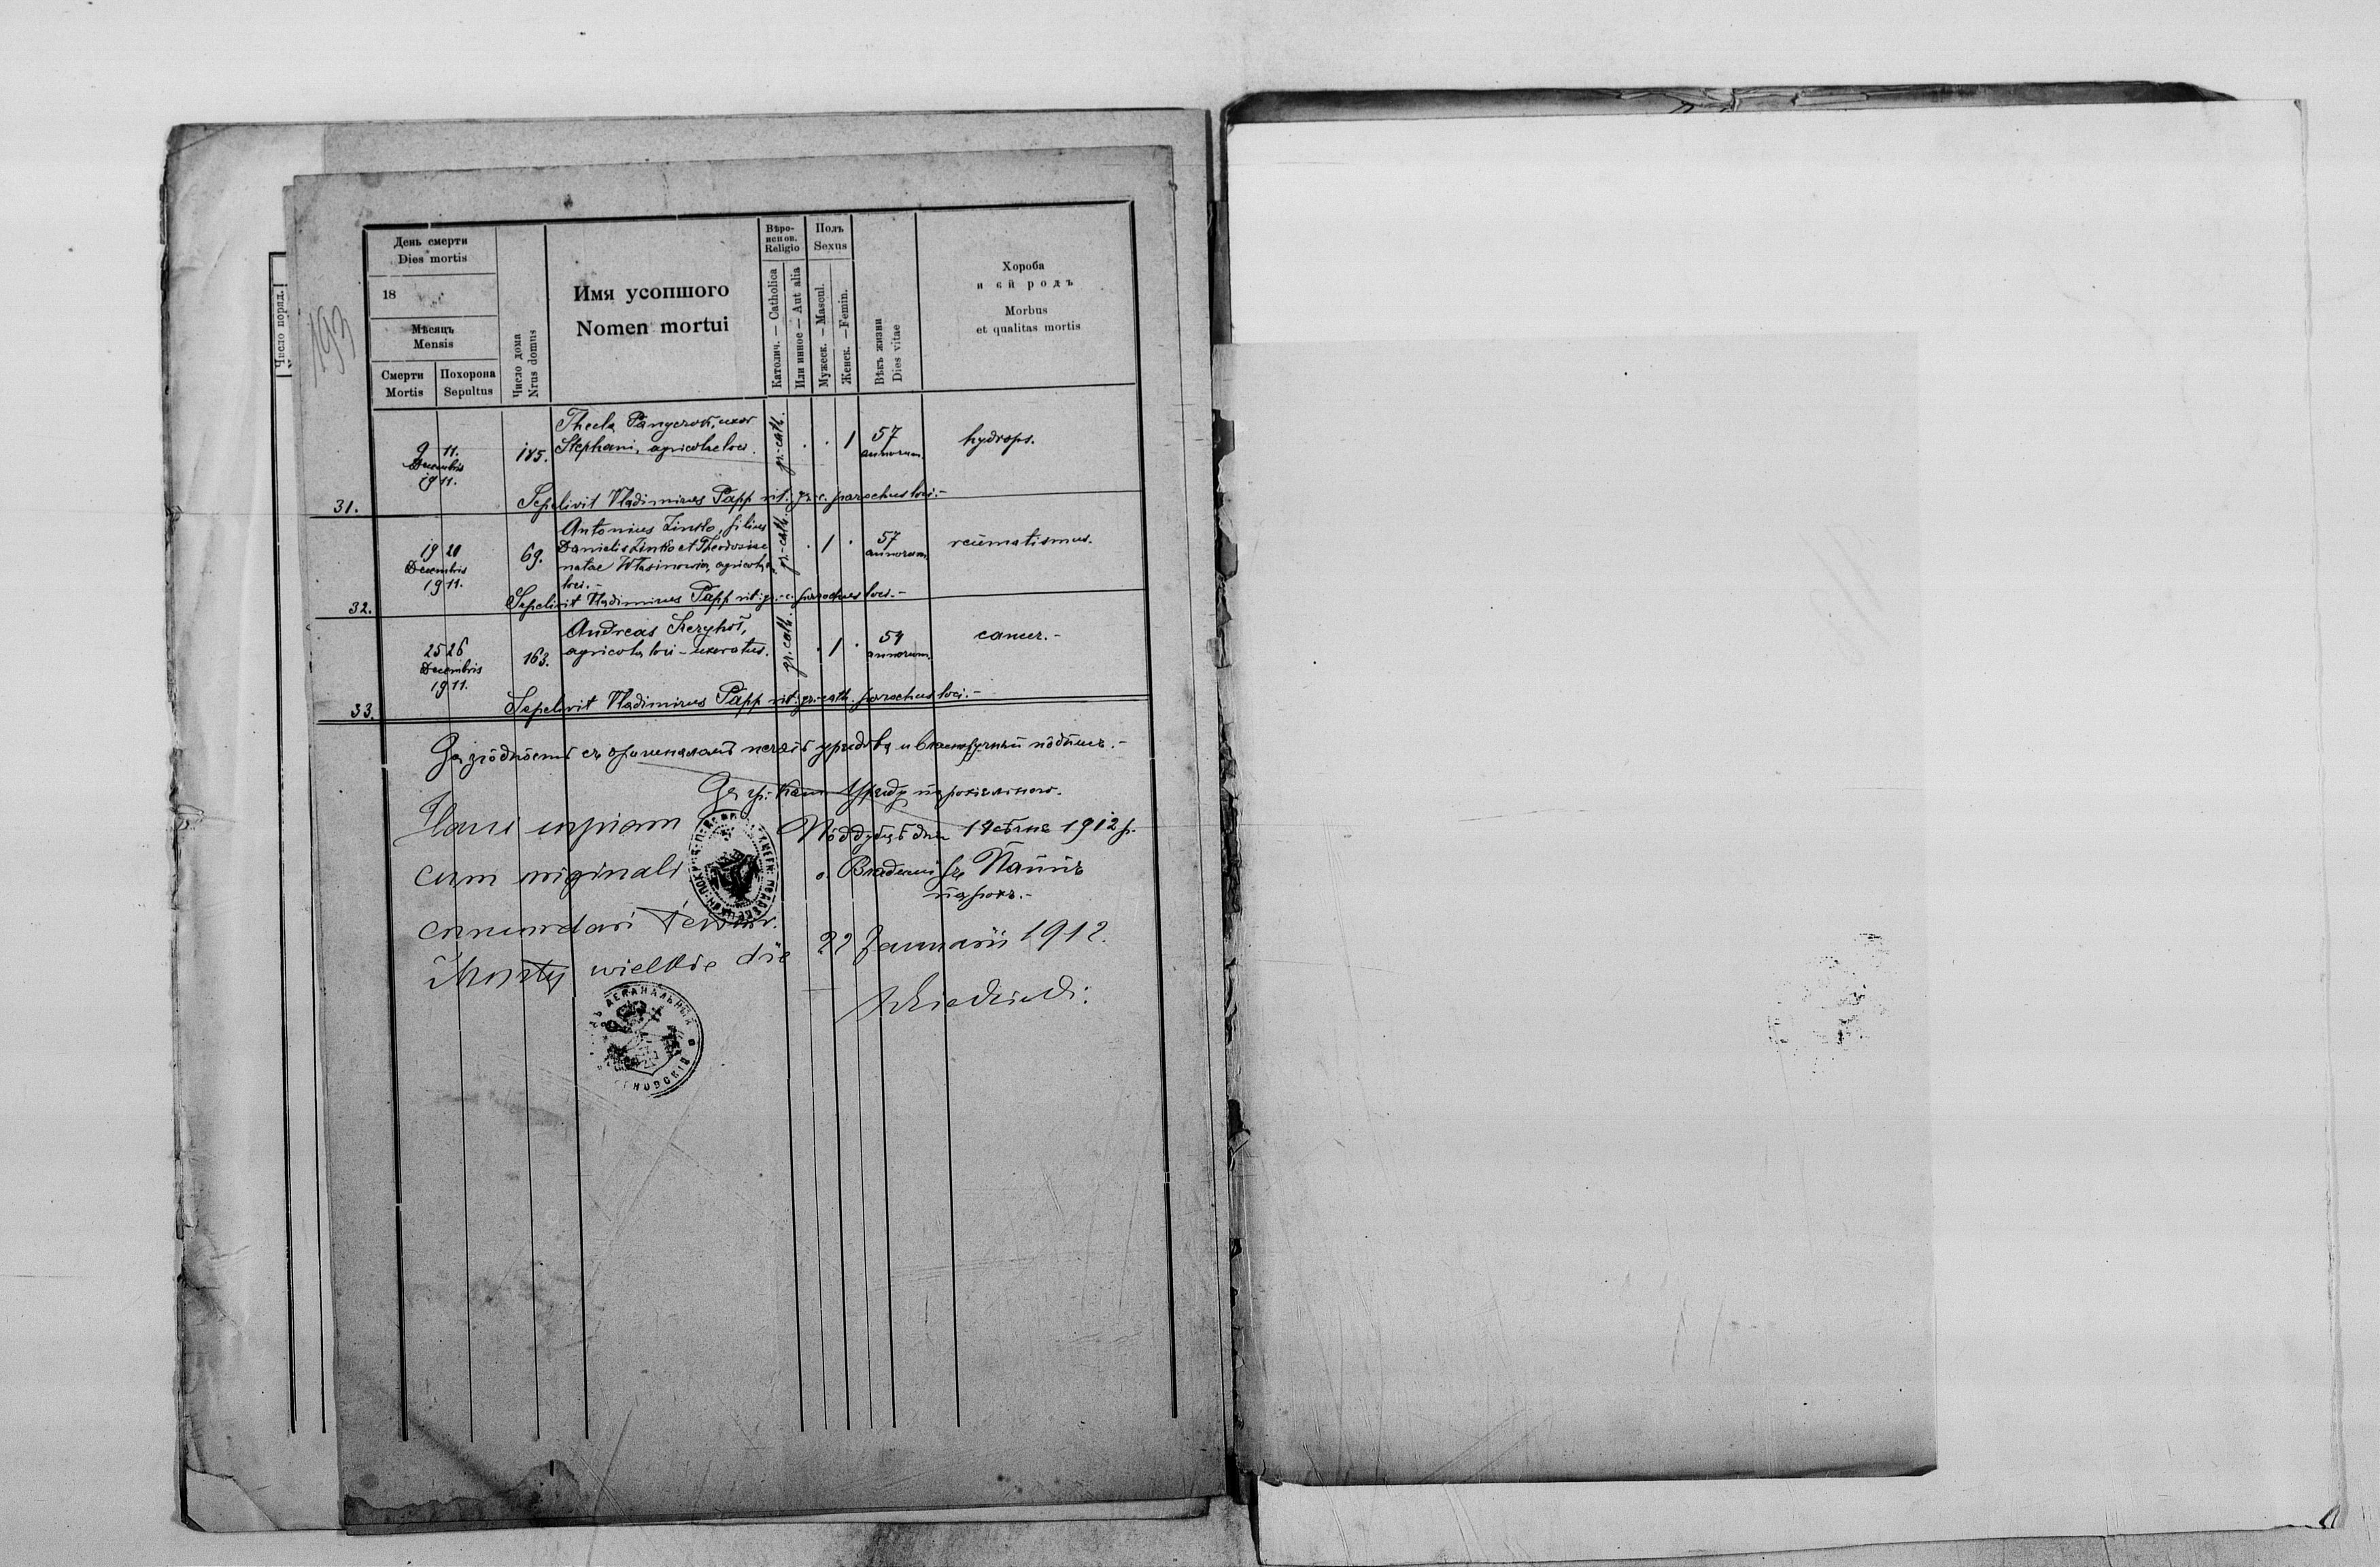 Число поряд.
193
День смерти
Dies mortis
18
Мѣсяцъ
Mensis
Смерти
Mortis
Похорона
Sepultus
Число дома
Nrus domus
Имя усопшого
Nomen mortui
Вѣро-
испов.
Religio
Католич. — Catholica
Или инное — Aut alia
Полъ
Sexus
Мужеск. — Mascul.
Женск. — Femin.
Вѣкъ жизни
Dies vitae
Хороба
и єй родъ
Morbus
et qualitas mortis
31.
9 11.
Decembris
1911.
185.
Thecla uxor
Stephani, agricolae loci.
gr.-cath.
. . 1
57
annorum.
hydrops.
Sepelivit Vladimirus Papp rit. gr.-c. parochus loci.-
32.
19 20
Decembris
1911.
69.
Antonius Zinko, filius
Danielis Zinko et Theodosiae
natae agricola
loci.-
gr.-cath.
. 1 .
57
annorum.
reumatismus.
Sepelivit Vladimirus Papp rit. gr.-c. parochus loci.-
33.
25 26
Decembris
1911.
163.
Andreas
agricola loci - uxoratus.
gr. cath.
. 1 .
54
annorum.
cancer.-
Sepelivit Vladimirus Papp rit. gr.-cath. parochus loci.-
За згôдность съ оригиналомъ печать урядова и власноручный пôдпись.-
За гр: кат. Урядъ парохіяльного.
Hanc copiam
Пôддубцѣ дня 1912 р.
cum originali
о. Владимиръ Паппъ
парохъ.-
concordari testor.
Mosty wielkie die 22 Januarii 1912.
ДЕКАНАЛЬНЫЙ